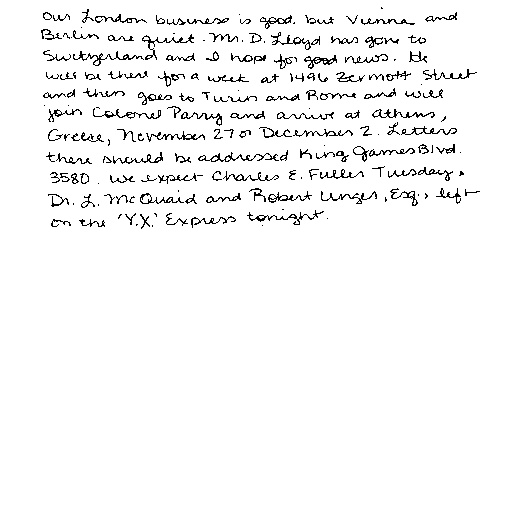 Our London business is good, but Vienna and
Berlin are quiet. Mr. D. Lloyd has gone to
Switzerland and I hope for good news. He
will be there for a week at 1496 Zermott Street
and then goes to Turin and Rome and will
join Colonel Parry and arrive at Athens,
Greece, November 27 or December 2. Letters
there should be addressed King James Blvd.
3580. We expect Charles E. Fuller Tuesday.
Dr. L. McQuaid and Robert Unger, Esq., left
on the 'Y.X.' Express tonight.